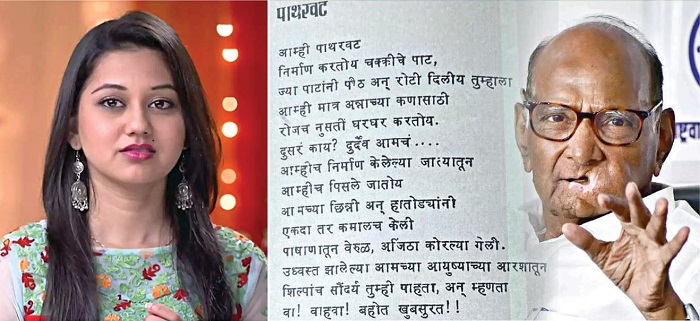 पाथरवट
आम्ही पाथरवट
निर्माण करतोय चक्कीचे पाट,
ज्या पाटांनी पीठ अन् रोटी दिलीय तुम्हाला
आम्ही मात्र अन्नाच्या कणासाठी
रोजच नुसती घरघर करतोय.
दुसरं काय? दुर्दैव आमचं....
आम्हीच निर्माण केलेल्या जात्यातून
आम्हीच पिसले जातोय
आमच्या छिन्नी अन् हातोड्यांनी
एकदा तर कमालच केली
पाषाणातून वेरुळ, अजिंठा कोरल्या गेली.
उध्वस्त झालेल्या आमच्या आयुष्याच्या आरशातून
शिल्पांच सौंदर्य तुम्ही पाहता, अन् म्हणता
वा! वाहवा! बहोत खुबसुरत!!